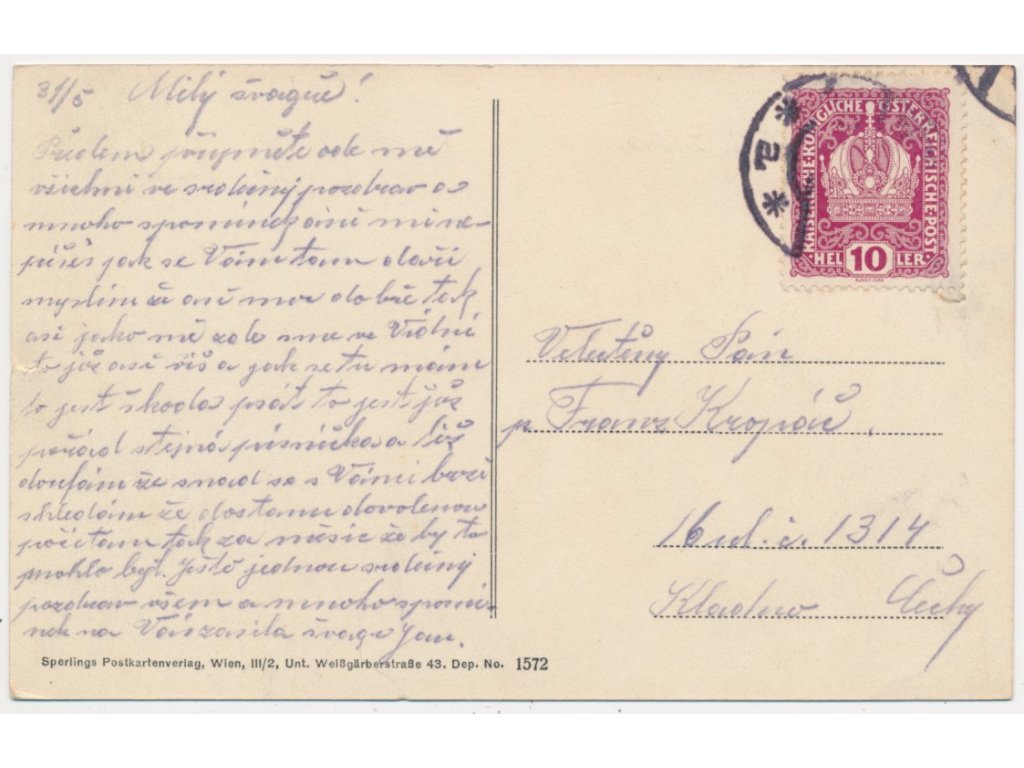 31/5 Milý švagře!
Předem přijměte ode mě
všichni ve srdečný pozdrav a
mnoho spomínek ani mi ne-
píšeš jak se Vám tam daří
myslím že asi moc dobře tak
asi jako mě zde sme ve Vídni
to již asi víš a jak se tu mám
to jest škoda psát to jest již
pořád stejná písnička a též
doufám že snad se s Vámi brzi
shledám že dostanu dovolenou
počítam tak za měsíc že by to
mohlo být. Jestě jednou srdečný
pozdrav všem a mnoho spomí-
nek na Vás zasila švagr Jan.
Sperlings Postkartenverlag, Wien, III/2, Unt. Weißgärberstraße 43. Dep. No. 1572
KAISERLICHE·KÖNIGLICHE ÖSTERREICHISCHE·POST
HEL 10 LER
* 2 *
Velctěný Pán
p. Franz Kropáč.
16 ul. č. 1314
Kladno Čechy